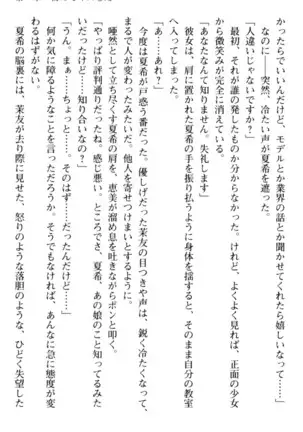 かったらでいいんだけど、モデルとか業界の話とか聞かせてくれたら嬉しいなって……」
なのに――突然、冷たい声が夏希を遮った。
「人違いじゃないですか？」
最初、それが誰の発したものか分からなかった。けれど、よくよく見れば、正面の少女
から微笑みが完全に消えていた。
「あ……あれ？」
「あなたなんて知りません。失礼します」
彼女は、肩に置かれた夏希の手を振り払うように身体を揺すると、そのまま自分の教室
へ入ってしまった。
今度は夏希が戸惑う番だった。優しげだった茉友の目つきや声は、鋭く冷たくなって、
まるで人が変わったみたいだ。他人を寄せつけまいとするように。
唖然として立ち尽くす夏希の肩を、恵美が溜め息を吐きながらポンと叩く。
「やっぱり評判通りだったね。感じ悪い。ところでさ、夏希、あの娘のこと知ってるみた
いだったけど……知り合いなの？」
「うん。まぁ……ちょっと……。そのはず……だったんだけど……」
何か気に障るようなことを言っただろうか。そうでもなければ、あんなに急に態度が変
わるはずがない。
夏希の脳裏には、茉友が去り際に見せた、怒りのような落胆のような、ひどく失望した